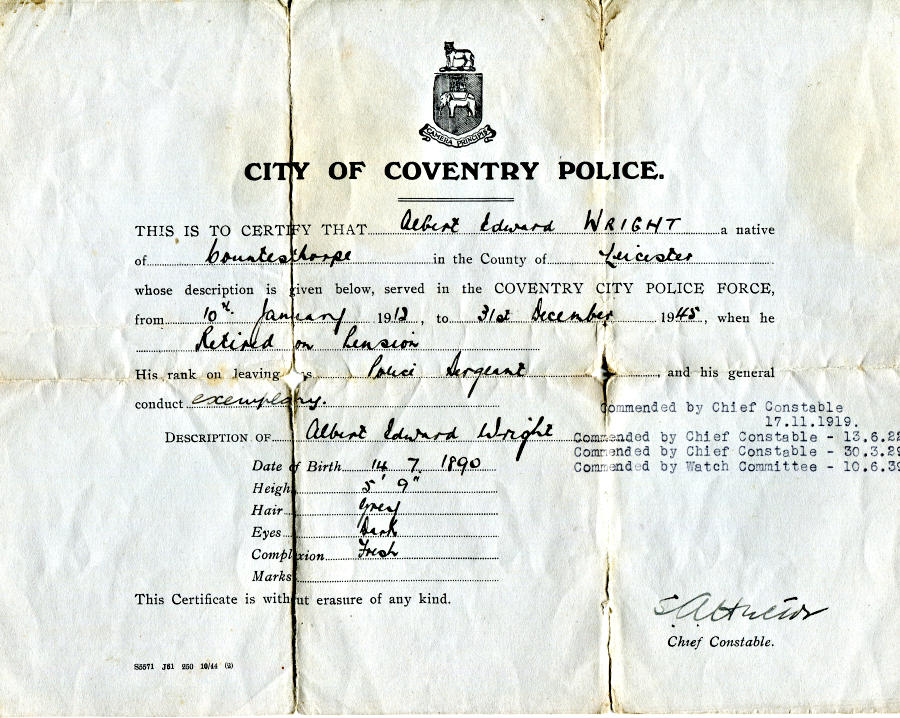 CAMERA PRINCIPIS
CITY OF COVENTRY POLICE.
THIS IS TO CERTIFY THAT Albert Edward WRIGHT a native
of Countesthorpe in the County of Leicester
whose description is given below, served in the COVENTRY CITY POLICE FORCE,
from 10th January 1913, to 31st December 1945, when he
Retired on Pension
His rank on leaving is Police Sergeant, and his general
conduct exemplary.
Commended by Chief Constable
17.11.1919.
DESCRIPTION OF Albert Edward Wright
Commended by Chief Constable - 13.6.22
Commended by Chief Constable - 30.3.29
Commended by Watch Committee - 10.6.39
Date of Birth 14 7. 1890
Height 5' 9"
Hair Grey
Eyes Dark
Complexion Fresh
Marks
This Certificate is without erasure of any kind.
Chief Constable.
S5571 J61 250 10/44 (2)